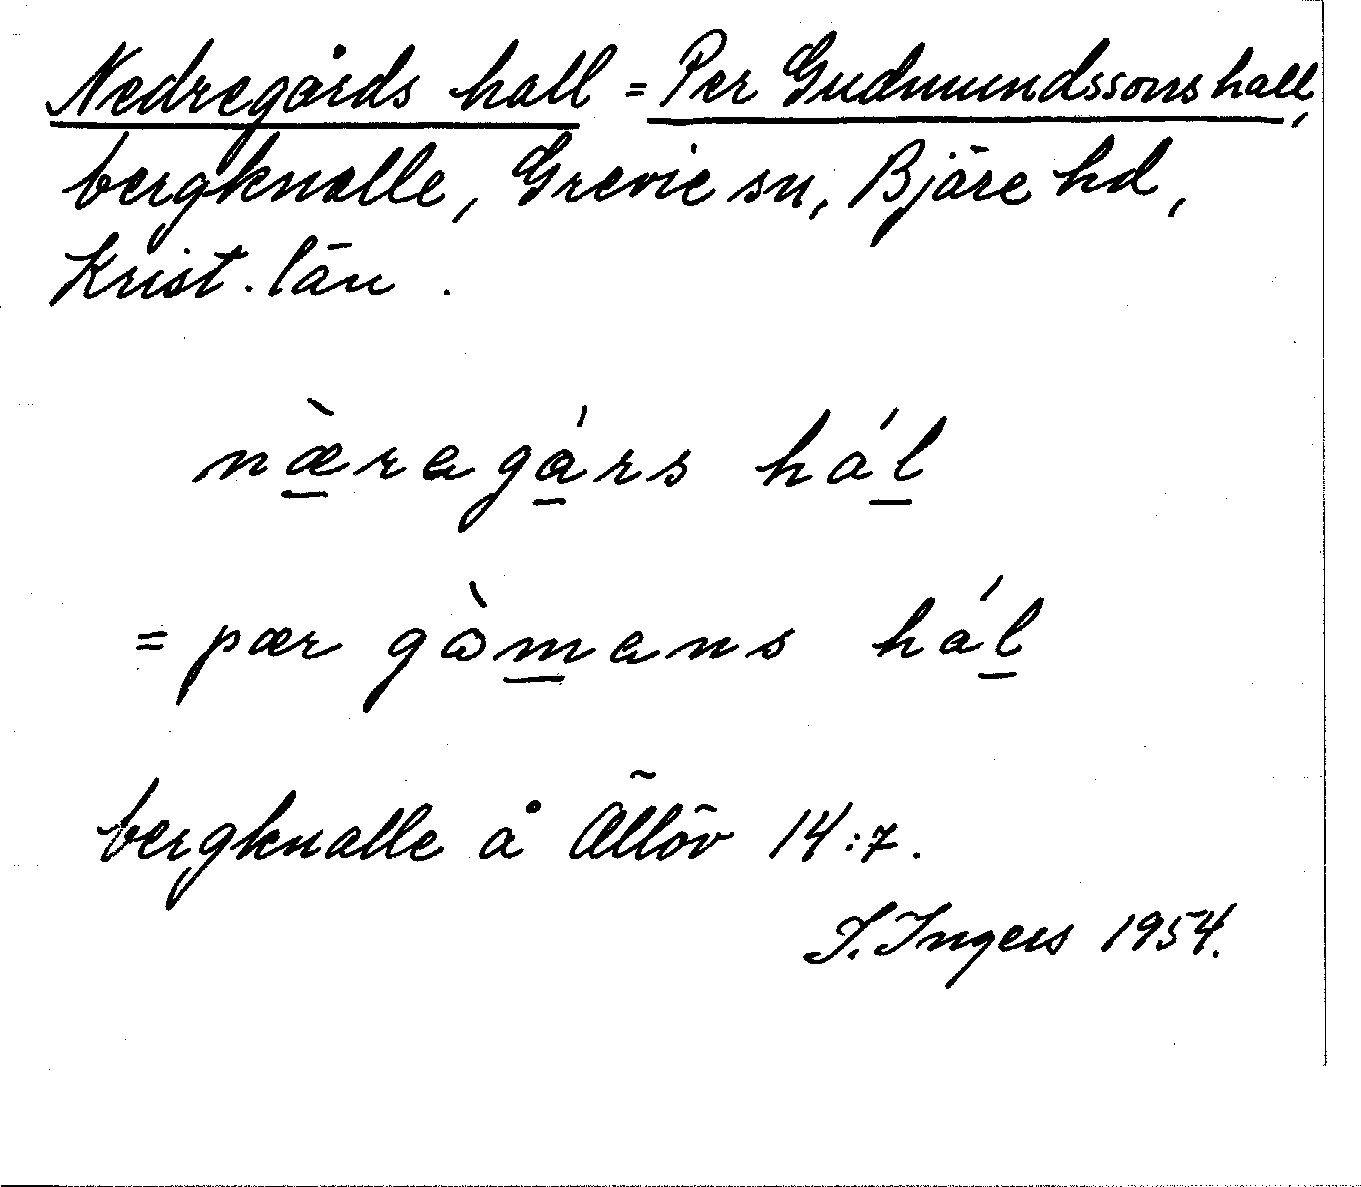 Nedregårds hall = Per Gudmundssons hall,
bergknalle, Grevie sn, Bjäre hd,
Krist. län.
næ̀ragárs hál
= pær gòmans hál
bergknalle å Ällöv 14:7.
I. Ingers 1954.